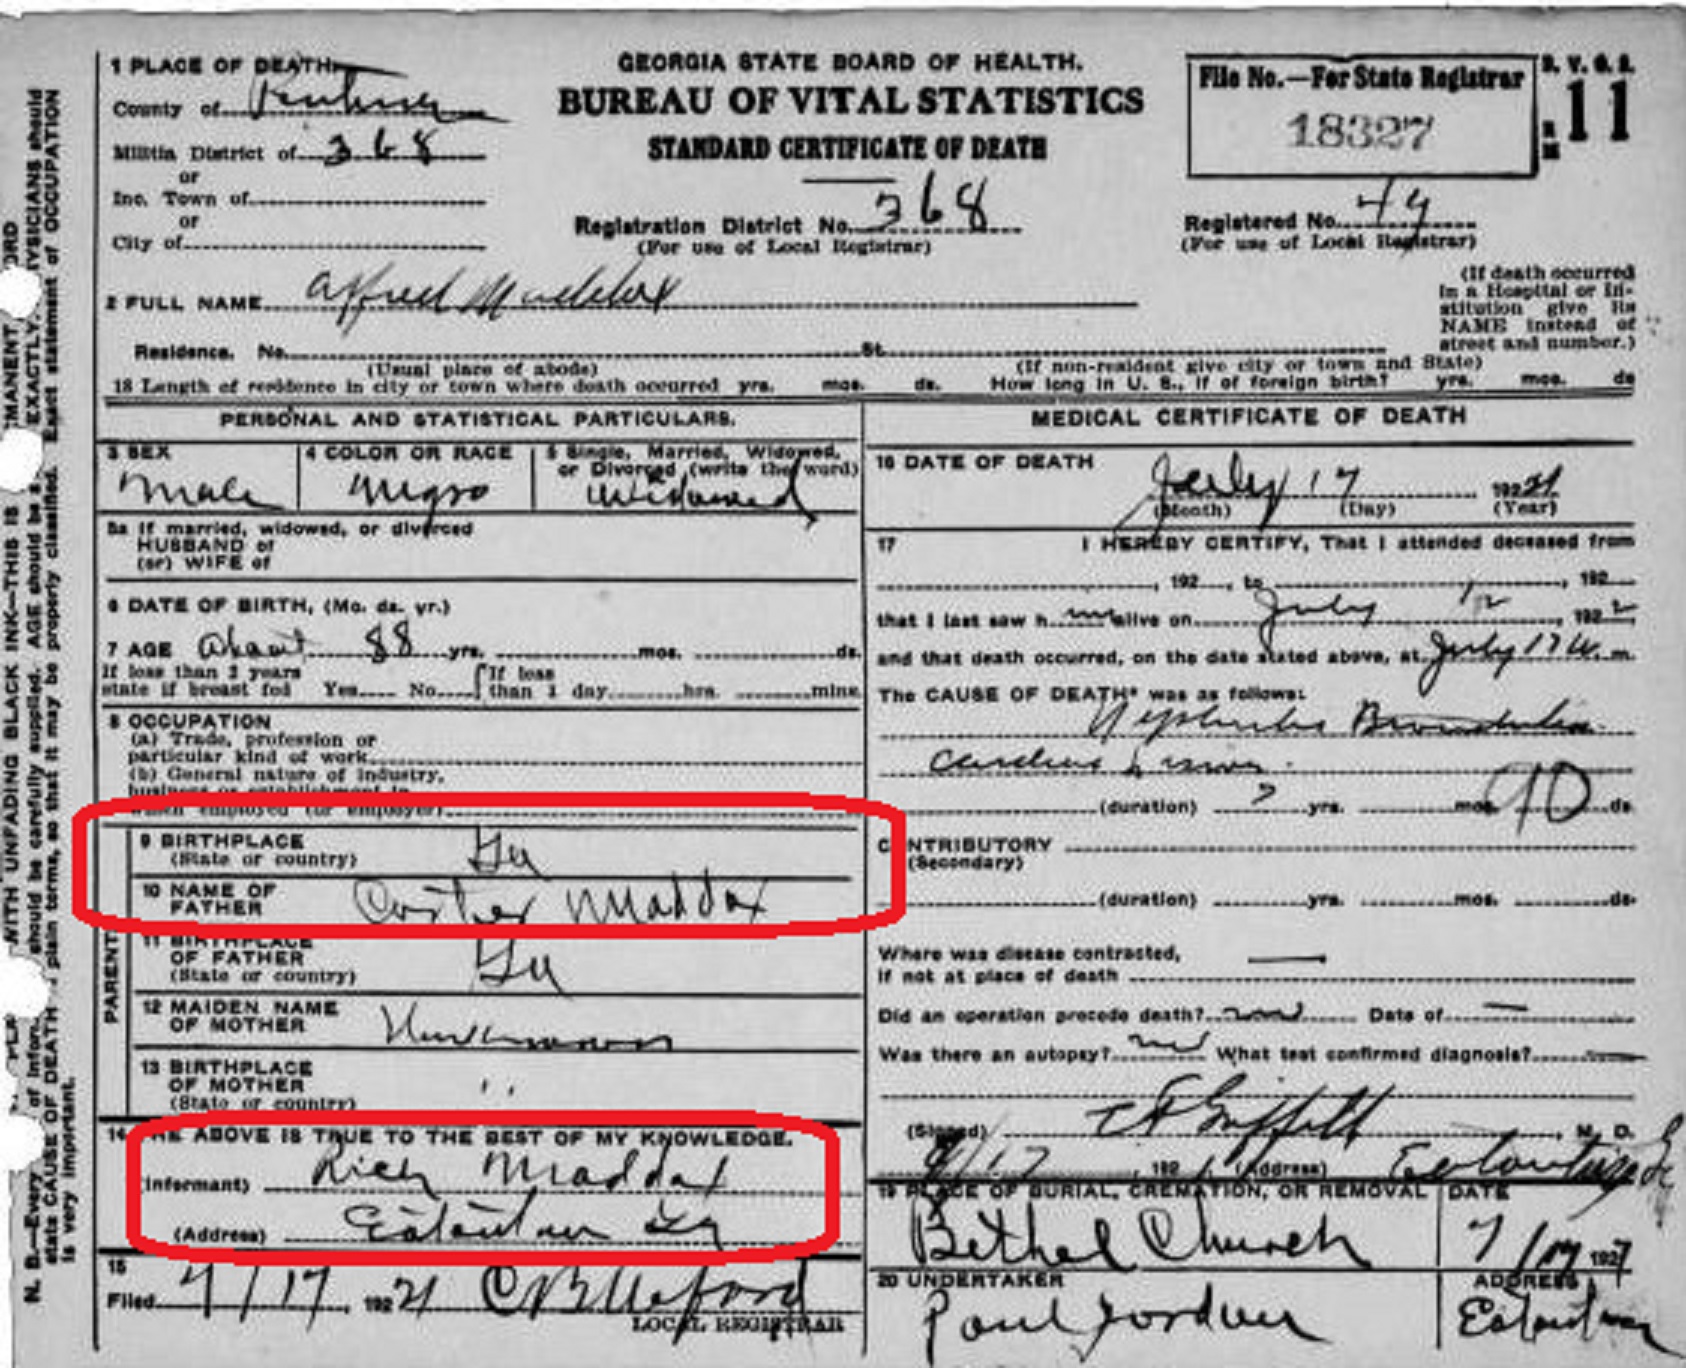 1 PLACE OF DEATH
GEORGIA STATE BOARD OF HEALTH.
BUREAU OF VITAL STATISTICS
STANDARD CERTIFICATE OF DEATH
File No.—For State Registrar
18327
11
County of
Militia District of 368
or
Inc. Town of
or
City of
Registration District No. 368
(For use of Local Registrar)
Registered No. 44
(For use of Local Registrar)
2 FULL NAME Alfred Maddox
(If death occurred
in a Hospital or In-
stitution give its
NAME instead of
street and number.)
Residence. No. St.
(Usual place of abode) (If non-resident give city or town and State)
18 Length of residence in city or town where death occurred yrs. mos. ds. How long in U. S., if of foreign birth? yrs. mos. ds
PERSONAL AND STATISTICAL PARTICULARS.
3 SEX
Male
4 COLOR OR RACE
Negro
5 Single, Married, Widowed,
or Divorced (write the word)
Widowed
5a If married, widowed, or divorced
HUSBAND of
(or) WIFE of
6 DATE OF BIRTH, (Mo. da. yr.)
7 AGE About 88 yrs. mos. ds.
If less than 2 years
state if breast fed Yes No
If less
than 1 day hrs. mins.
8 OCCUPATION
(a) Trade, profession or
particular kind of work
(b) General nature of industry,
business or establishment in
which employed (or employer)
9 BIRTHPLACE
(State or country) Ga
10 NAME OF
FATHER Maddox
PARENT
11 BIRTHPLACE
OF FATHER
(State or country) Ga
12 MAIDEN NAME
OF MOTHER Unknown
13 BIRTHPLACE
OF MOTHER
(State or country) ' '
14 THE ABOVE IS TRUE TO THE BEST OF MY KNOWLEDGE.
(Informant) Maddox
(Address) Eatonton Ga
15
Filed 7/17, 1921
LOCAL REGISTRAR
MEDICAL CERTIFICATE OF DEATH
16 DATE OF DEATH
July 17 1921
(Month) (Day) (Year)
17 I HEREBY CERTIFY, That I attended deceased from
, 192 , to , 192
that I last saw h alive on July 12, 192
and that death occurred, on the date stated above, at July 17 m.
The CAUSE OF DEATH* was as follows:
(duration) ? yrs. mos. ds
90
CONTRIBUTORY
(Secondary)
(duration) yrs. mos. ds.
Where was disease contracted,
if not at place of death
Did an operation precede death? Date of
Was there an autopsy? no What test confirmed diagnosis?
(Signed) , M. D.
, 192 (Address)
19 PLACE OF BURIAL, CREMATION, OR REMOVAL DATE
Bethel Church
20 UNDERTAKER ADDRESS
Paul Eatonton
WITH UNFADING BLACK INK—THIS IS
should be carefully supplied. AGE should be
EXACTLY.
plain terms, so that it may be properly classified. Exact statement of OCCUPATION
N. B.—Every
state CAUSE OF DEATH
is very important.